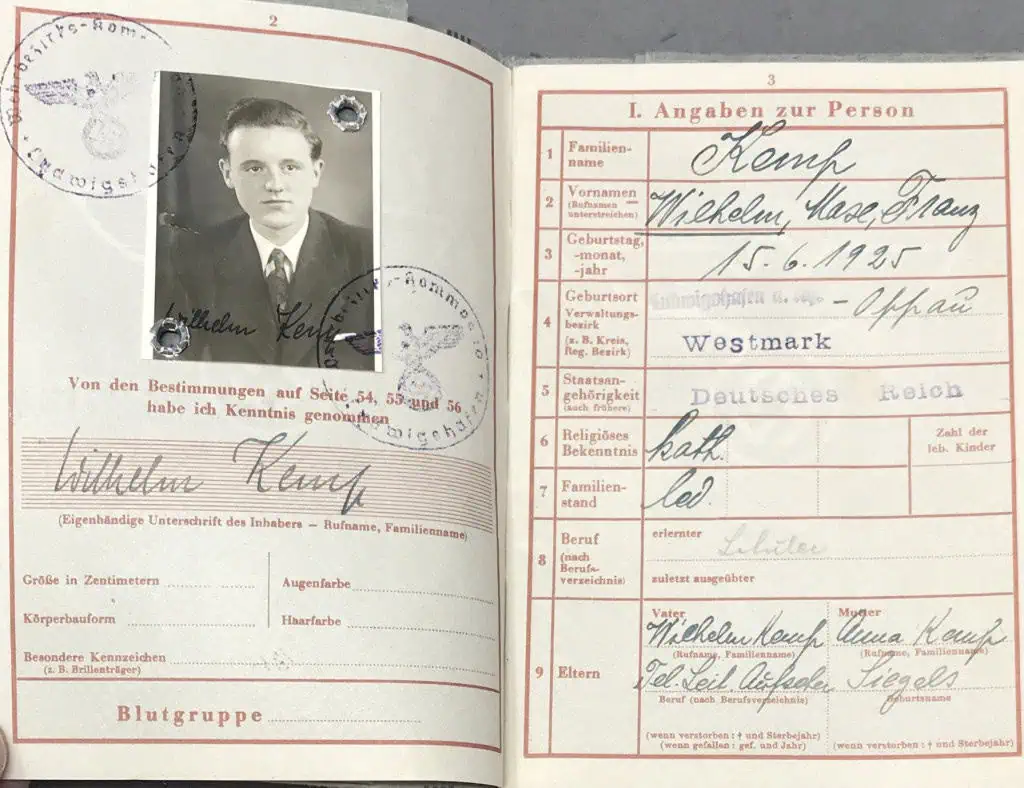 2
Wehrbezirks-Kom-
Ludwigshafen
Wilhelm Kemp
Wehrbezirks-Kommando
Ludwigshafen
Von den Bestimmungen auf Seite 54, 55 und 56
habe ich Kenntnis genommen
Wilhelm Kemp
(Eigenhändige Unterschrift des Inhabers — Rufname, Familienname)
Größe in Zentimetern
Augenfarbe
Körperbauform
Haarfarbe
Besondere Kennzeichen
(z. B. Brillenträger)
Blutgruppe
3
I. Angaben zur Person
1 Familien-
name
Kemp
2 Vornamen
(Rufnamen
unterstreichen)
Wilhelm, Franz
3 Geburtstag,
-monat,
-jahr
15.6.1925
4 Geburtsort
Verwaltungs-
bezirk
(z. B. Kreis,
Reg. Bezirk)
Ludwigshafen a. Rh. - Oppau
Westmark
5 Staatsan-
gehörigkeit
(auch frühere)
Deutsches Reich
6 Religiöses
Bekenntnis
kath.
Zahl der
leb. Kinder
7 Familien-
stand
led.
8 Beruf
(nach
Berufs-
verzeichnis)
erlernter
Schüler
zuletzt ausgeübter
9 Eltern
Vater
Mutter
Wilhelm Kemp
Anna Kemp
(Rufname, Familienname)
(Rufname, Familienname)
Tel. Leit. Aufseher
Siegels
Beruf (nach Berufsverzeichnis)
Geburtsname
(wenn verstorben: † und Sterbejahr)
(wenn gefallen: gef. und Jahr)
(wenn verstorben: † und Sterbejahr)